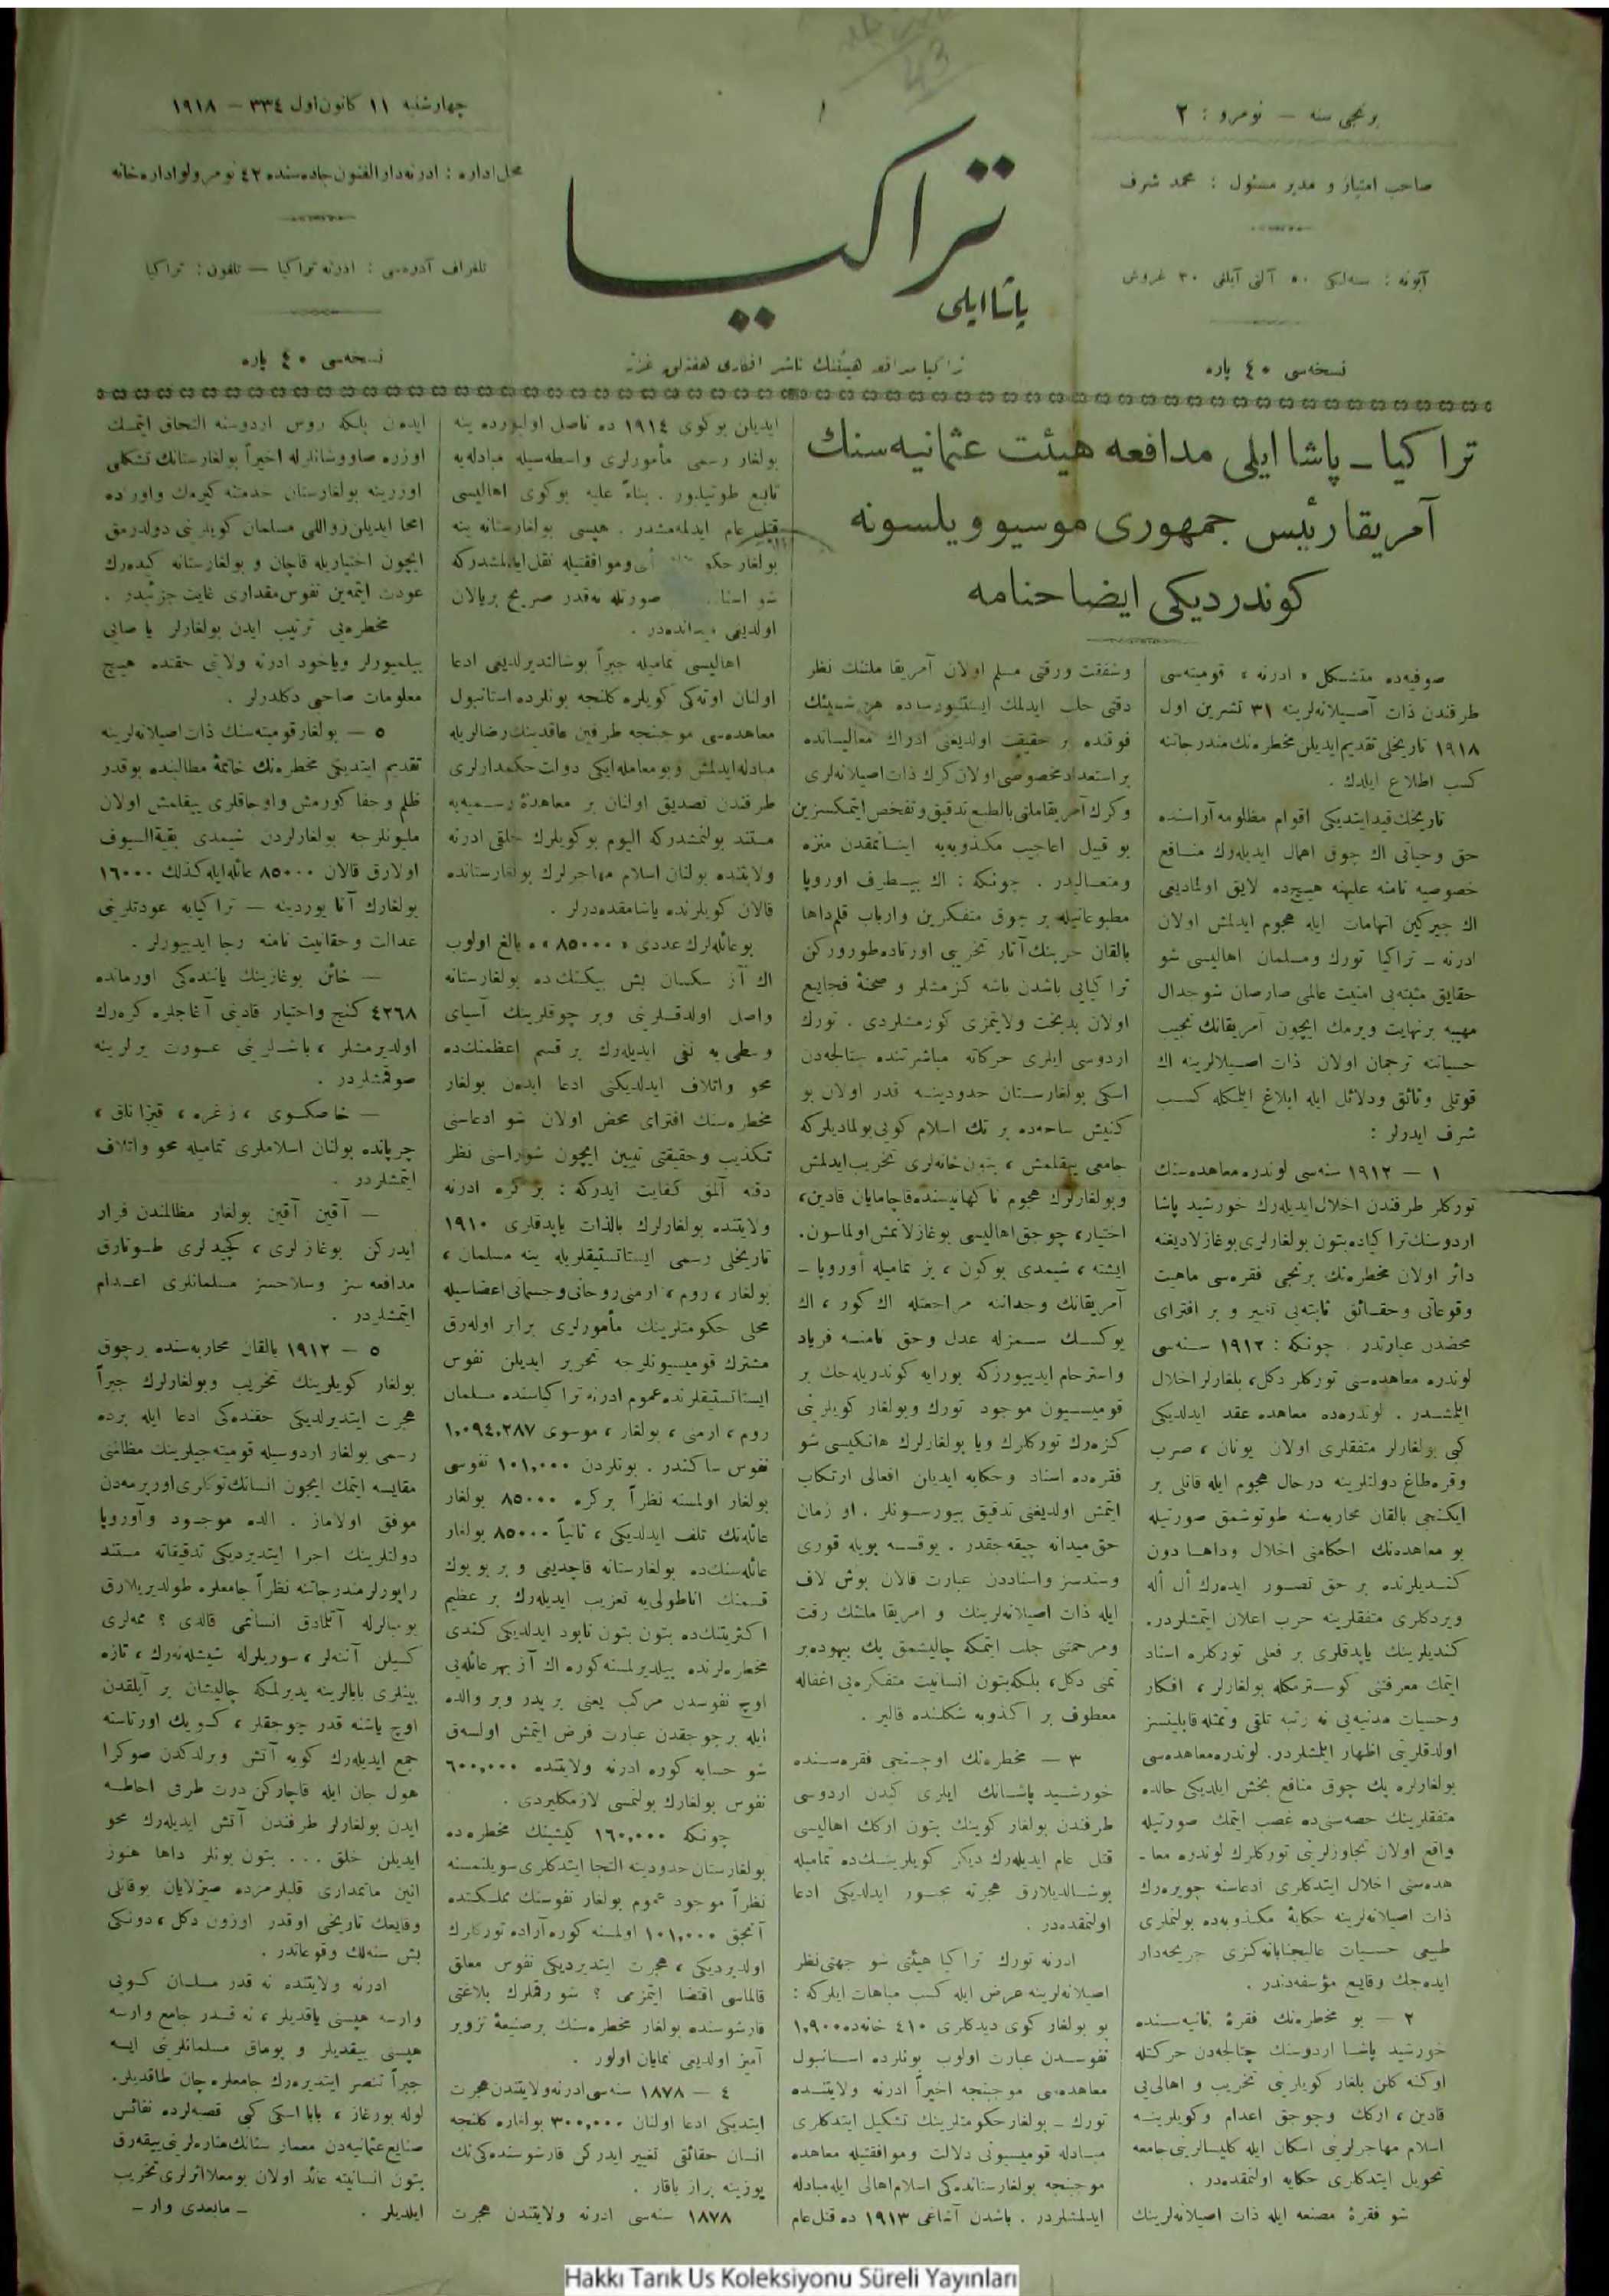 برنجى سنه — نومرو : ٢
صاحب امتياز و مدير مسئول : محمد شرف
آبونه : سنه‌لكى ٥٠ آلتى آيلغى ٣٠ غروش
نسخه‌سى ٤٠ پاره
تراكيا
پاشاايلى
تراكيا مدافعه هيئتنك ناشر افكارى هفته‌لق غزته
چهارشنبه ١١ كانون اول ٣٣٤ – ١٩١٨
محل اداره : ادرنه دار الفنون جاده‌سنده ٤٢ نومرولو اداره‌خانه
تلغراف آدره‌سى : ادرنه تراكيا — تلفون : تراكيا
نسخه‌سى ٤٠ پاره
تراكيا ــ پاشا ايلى مدافعه هيئت عثمانيه سنك
آمريقا رئيس جمهورى موسيو ويلسونه
كوندرديكى ايضاحنامه
صوفيه‌ده متشكل « ادرنه » قوميته‌سى
طرفندن ذات آصيلانه‌لرينه ٣١ تشرين اول
١٩١٨ تاريخلى تقديم ايديلن مخطره‌نك مندرجاتنه
كسب اطلاع ايلدك .
تاريخك قيد ايتديكى اقوام مظلومه آراسنده
حق وحياتى اك چوق اهمال ايديله‌رك منافع
خصوصيه نامنه عليهنه هيچ‌ده لايق اولماديغى
اك چيركين اتهامات ايله هجوم ايدلمش اولان
ادرنه ــ تراكيا تورك ومسلمان اهاليسى شو
حقايق مثبته‌يى امنيت عالمى صارصان شو جدال
مهيبه برنهايت ويرمك ايچون آمريقانك نجيب
حسياتنه ترجمان اولان ذات اصيلانه‌لرينه اك
قوتلى وثائق ودلائل ايله ابلاغ ايتمكله كسب
شرف ايدرلر :
١ — ١٩١٢ سنه‌سى لوندره معاهده‌سنك
توركلر طرفندن اخلال ايديله‌رك خورشيد پاشا
اردوسنك تراكياده بتون بولغارلرى بوغازلاديغنه
دائر اولان مخطره‌نك برنجى فقره‌سى ماهيت
وقوعاتى وحقائق ثابته‌يى تغيير و بر افتراى
محضدن عبارتدر . چونكه : ١٩١٢ سنه‌سى
لوندره معاهده‌سى توركلر دكل، بلغارلر اخلال
ايتمشدر . لوندره‌ده معاهده عقد ايدلديكى
كبى بولغارلر متفقلرى اولان يونان ، صرب
وقره‌طاغ دولتلرينه درحال هجوم ايله قانلى بر
ايكنجى بالقان محاربه‌سنه طوتوشمق صورتيله
بو معاهده‌نك احكامنى اخلال وداها دون
كنديلرنده بر حق تصور ايده‌رك أل أله
ويردكلرى متفقلرينه حرب اعلان ايتمشلردر.
كنديلرينك ياپدقلرى بر فعلى توركلره اسناد
ايتمك معرفتنى كوسترمكله بولغارلر ، افكار
وحسيات مدنيه‌يى نه رتبه تلقى وتمثله قابليتسز
اولدقلرينى اظهار ايتمشلردر. لوندره معاهده‌سى
بولغارلره پك چوق منافع بخش ايلديكى حالده
متفقلرينك حصه‌سنى‌ده غصب ايتمك صورتيله
واقع اولان تجاوزلرينى توركلرك لوندره معا ـ
هده‌سنى اخلال ايتدكلرى ادعاسنه چويره‌رك
ذات اصيلانه‌لرينه حكايۀ مكذوبه‌ده بولنملرى
طبيعى حسيات عاليجنابانه‌كزى جريحه‌دار
ايده‌جك وقايع مؤسفه‌دندر .
٢ — بو مخطره‌نك فقرۀ ثانيه‌سنده
خورشيد پاشا اردوسنك چتالجه‌دن حركتله
اوكنه كلن بلغار كويلرينى تخريب و اهاليى
قادين ، اركك وچوجق اعدام وكويلرينه
اسلام مهاجرلرينى اسكان ايله كليسالرينى جامعه
تحويل ايتدكلرى حكايه اولنمقده‌در .
شو فقرۀ مصنعه ايله ذات اصيلانه‌لرينك
وشفقت ورقتى مسلم اولان آمريقا ملتنك نظر
دقتى جلب ايدلمك ايستنيورسه‌ده هر شيئك
فوقنده بر حقيقت اولديغنى ادراك معاليسانده
بر استعداد مخصوصى اولان كرك ذات اصيلانه‌لرى
وكرك آمريقا ملتى بالطبع تدقيق و تفحص ايتمكسزين
بو قبيل اعاجيب مكذوبه‌يه اينانمقدن منزه
ومتعاليدر . چونكه : اك بيطرف اوروپا
مطبوعاتيله بر چوق متفكرين وارباب قلم داها
بالقان حربنك آثار تخريبى اورتاده طورركن
تراكيايى باشدن باشه كزمشلر و صحنۀ فجايع
اولان بدبخت ولايتمزى كورمشلردى . تورك
اردوسى ايلرى حركاته مباشرتنده چتالجه‌دن
اسكى بولغارستان حدودينه قدر اولان بو
كنيش ساحه‌ده بر تك اسلام كويى بولماديلركه
جامعى ييقلمش ، بتون خانه‌لرى تخريب ايدلمش
وبولغارلرك هجوم ناكهانيسنده قاچامايان قادين،
اختيار، چوجق اهاليسى بوغازلانمش اولماسون.
ايشته ، شيمدى بوكون ، بز تماميله أوروپا ـ
آمريقانك وجداننه مراجعتله اك كور ، اك
يوكسك سسمزله عدل وحق نامنه فرياد
واسترحام ايدييورزكه بورايه كوندريله‌جك بر
قوميسيون موجود تورك وبولغار كويلرينى
كزه‌رك توركلرك ويا بولغارلرك هانكيسى شو
فقره‌ده اسناد وحكايه ايديلن افعالى ارتكاب
ايتمش اولديغنى تدقيق بيورسونلر . او زمان
حق ميدانه چيقه‌جقدر . يوقسه بويله قورى
وسندسز واسناددن عبارت قالان بوش لاف
ايله ذات اصيلانه‌لرينك و امريقا ملتنك رقت
ومرحمتنى جلب ايتمكه چاليشمق پك بيهوده بر
تمنى دكل، بلكه بتون انسانيت متفكره‌يى اغفاله
معطوف بر اكذوبه شكلنده قالير .
٣ — مخطره‌نك اوچنجى فقره‌سنده
خورشيد پاشانك ايلرى كيدن اردوسى
طرفندن بولغار كوينك بتون اركك اهاليسى
قتل عام ايديله‌رك ديكر كويلرينك‌ده تماميله
بوشالديلارق هجرته مجبور ايدلديكى ادعا
اولنمقده‌در .
ادرنه تورك تراكيا هيئتى شو جهتى نظر
اصيلانه‌لرينه عرض ايله كسب مباهات ايلركه :
بو بولغار كوى ديدكلرى ٤١٠ خانه‌ده ١,٩٠٠
نفوسدن عبارت اولوب بونلرده استانبول
معاهده‌سى موجبنجه اخيراً ادرنه ولايتنده
تورك ــ بولغار حكومتلرينك تشكيل ايتدكلرى
مبادله قوميسيونى دلالت وموافقتيله معاهده
موجبنجه بولغارستانده‌كى اسلام اهالى ايله مبادله
ايدلمشلردر . باشدن آشاغى ١٩١٣ ده قتل عام
ايديلن بوكوى ١٩١٤ ده ناصل اوليورده ينه
بولغار رسمى مأمورلرى واسطه‌سيله مبادله‌يه
تابع طوتيليور . بناءً عليه بوكوى اهاليسى
قتل عام ايدلمه‌مشدر . هپسى بولغارستانه ينه
بولغار وموافقتيله نقل ايدلمشدركه
شو صورتله نه‌قدر صريح بر يالان
اولديغى ميدانده‌در .
اهاليسى تماميله جبراً بوشالتديرلديغى ادعا
اولنان اوته‌كى كويلره كلنجه بونلرده استانبول
معاهده‌سى موجبنجه طرفين عاقدينك رضالريله
مبادله ايدلمش وبو معامله ايكى دولت حكمدارلرى
طرفندن تصديق اولنان بر معاهدۀ رسميه‌يه
مستند بولنمشدركه اليوم بوكويلرك خلقى ادرنه
ولايتنده بولنان اسلام مهاجرلرك بولغارستانده
قالان كويلرنده ياشامقده‌درلر .
بو عائله‌لرك عددى « ٨٥٠٠٠ » ه بالغ اولوب
اك آز سكسان بش بيكنك‌ده بولغارستانه
واصل اولدقلرينى وبر چوقلرينك آسياى
وسطى‌يه نفى ايديله‌رك بر قسم اعظمنك‌ده
محو واتلاف ايدلديكنى ادعا ايدن بولغار
مخطره‌سنك افتراى محض اولان شو ادعاسى
تكذيب وحقيقتى تبيين ايچون شوراسنى نظر
دقته آلمق كفايت ايدركه : بر كره ادرنه
ولايتنده بولغارلرك بالذات ياپدقلرى ١٩١٠
تاريخلى رسمى ايستاتستيقلريله ينه مسلمان ،
بولغار ، روم ، ارمنى روحانى وجسمانى اعضاسيله
محلى حكومتلرينك مأمورلرى برابر اوله‌رق
مشترك قوميسيونلرجه تحرير ايديلن نفوس
ايستاتستيقلرنده عموم ادرنه تراكياسنده مسلمان
روم ، ارمنى ، بولغار ، موسوى ١,٠٩٤,٢٨٧
نفوس ساكندر . بونلردن ١٠١,٠٠٠ نفوسى
بولغار اولمسنه نظراً بر كره ٨٥٠٠٠ بولغار
عائله‌نك تلف ايدلديكى ، ثانياً ٨٥٠٠٠ بولغار
عائله‌سنك‌ده بولغارستانه قاچديغى و بر بويوك
قسمنك اناطولى‌يه تعزيب ايديله‌رك بر عظيم
اكثريتنك‌ده بتون بتون نابود ايدلديكى كندى
مخطره‌لرنده بيلديرلمسنه كوره اك آز بهر عائله‌يى
اوچ نفوسدن مركب يعنى بر پدر وبر والده
ايله بر چوجقدن عبارت فرض ايتمش اولسه‌ق
شو حسابه كوره ادرنه ولايتنده ٦٠٠,٠٠٠
نفوس بولغارك بولنمسى لازمكليردى .
چونكه ١٦٠,٠٠٠ كيشينك مخطره‌ده
بولغارستان حدودينه التجا ايتدكلرى سويلنمسنه
نظراً موجود عموم بولغار نفوسنك مملكتده
آنجق ١٠١,٠٠٠ اولمسنه كوره آراده توركلرك
اولديرديكى ، هجرت ايتديرديكى نفوس معلق
قالماسى اقتضا ايتمزمى ؟ شو رقملرك بلاغتى
قارشوسنده بولغار مخطره‌سنك بر صنيعۀ تزوير
آميز اولديغى نمايان اولور .
٤ — ١٨٧٨ سنه‌سى ادرنه ولايتندن هجرت
ايتديكى ادعا اولنان ٣٠٠,٠٠٠ بولغاره كلنجه
انسان حقائقى تغيير ايدركن قارشوسنده‌كى‌نك
يوزينه براز باقار .
١٨٧٨ سنه‌سى ادرنه ولايتندن هجرت
ايدن بلكه روس اردوسنه التحاق ايتمك
اوزره صاووشانلرله اخيراً بولغارستانك تشكلى
اوزرينه بولغارستان خدمتنه كيرمك واورده
امحا ايديلن زواللى مسلمان كويلرينى دولدرمق
ايچون اختياريله قاچان و بولغارستانه كيده‌رك
عودت ايتمه‌ين نفوس مقدارى غايت جزئيدر .
مخطره‌يى ترتيب ايدن بولغارلر يا صايى
بيلميورلر وياخود ادرنه ولايتى حقنده هيچ
معلومات صاحبى دكلدرلر .
٥ — بولغار قوميته‌سنك ذات اصيلانه‌لرينه
تقديم ايتديكى مخطره‌نك خاتمۀ مطالبنده بوقدر
ظلم وجفا كورمش واوجاقلرى ييقلمش اولان
مليونلرجه بولغارلردن شيمدى بقية السيوف
اولارق قالان ٨٥٠٠٠ عائله ايله كذلك ١٦٠٠٠
بولغارك آنا يوردينه — تراكيايه عودتلرينى
عدالت وحقانيت نامنه رجا ايدييورلر .
— خائن بوغازينك ياننده‌كى اورمانده
٤٢٦٨ كنج واختيار قادينى آغاجلره كره‌رك
اولديرمشلر ، باشلرينى عورت يرلرينه
صوقمشلردر .
— خاصكوى ، زغره ، قيزانلق ،
چرپانده بولنان اسلاملرى تماميله محو واتلاف
ايتمشلردر .
— آقين آقين بولغار مظالمندن فرار
ايدركن بوغازلرى ، كچيدلرى طوتارق
مدافعه‌سز وسلاحسز مسلمانلرى اعدام
ايتمشلردر .
٥ — ١٩١٢ بالقان محاربه‌سنده بر چوق
بولغار كويلرينك تخريب وبولغارلرك جبراً
هجرت ايتديرلديكى حقنده‌كى ادعا ايله برده
رسمى بولغار اردوسيله قوميته‌جيلرينك مظالمنى
مقايسه ايتمك ايچون انسانك توكلرى اورپرمه‌دن
موفق اولاماز . الده موجود وآوروپا
دولتلرينك اجرا ايتديرديكى تدقيقاته مستند
راپورلر مندرجاتنه نظراً جامعلره طولديريلارق
بومبالرله آتلمادق انسانمى قالدى ؟ ممه‌لرى
كسيلن آننه‌لر ، سونكولرله شيشلنه‌رك ، تازه
بيئلرى بابالرينه يديرلمكه چاليشان بر آيلقدن
اوچ ياشنه قدر چوجقلر ، كويك اورتاسنه
جمع ايديله‌رك كويه آتش ويرلدكدن صوكرا
هول جان ايله قاچاركن درت طرفى احاطه
ايدن بولغارلر طرفندن آتش ايديله‌رك محو
ايديلن خلق ... بتون بونلر داها هنوز
انين ماتمدارى قلبلرمزده صيزلايان بوقانلى
وقايعك تاريخى اوقدر اوزون دكل ، دونكى
بش سنه‌لك وقوعاتدر .
ادرنه ولايتنده نه قدر مسلمان كويى
وارسه هپسنى ياقديلر ، نه قدر جامع وارسه
هپسنى ييقديلر و پوماق مسلمانلرينى ايسه
جبراً تنصر ايتديره‌رك جامعلره چان طاقديلر.
لوله بورغاز ، بابا اسكى كبى قصبه‌لرده نفائس
صنايع عثمانيه‌دن معمار سنانك مناره‌لرينى ييقه‌رق
بتون انسانيته عائد اولان بو معلا اثرلرى تخريب
ايلديلر . ـ مابعدى وار ـ
Hakkı Tarık Us Koleksiyonu Süreli Yayınları